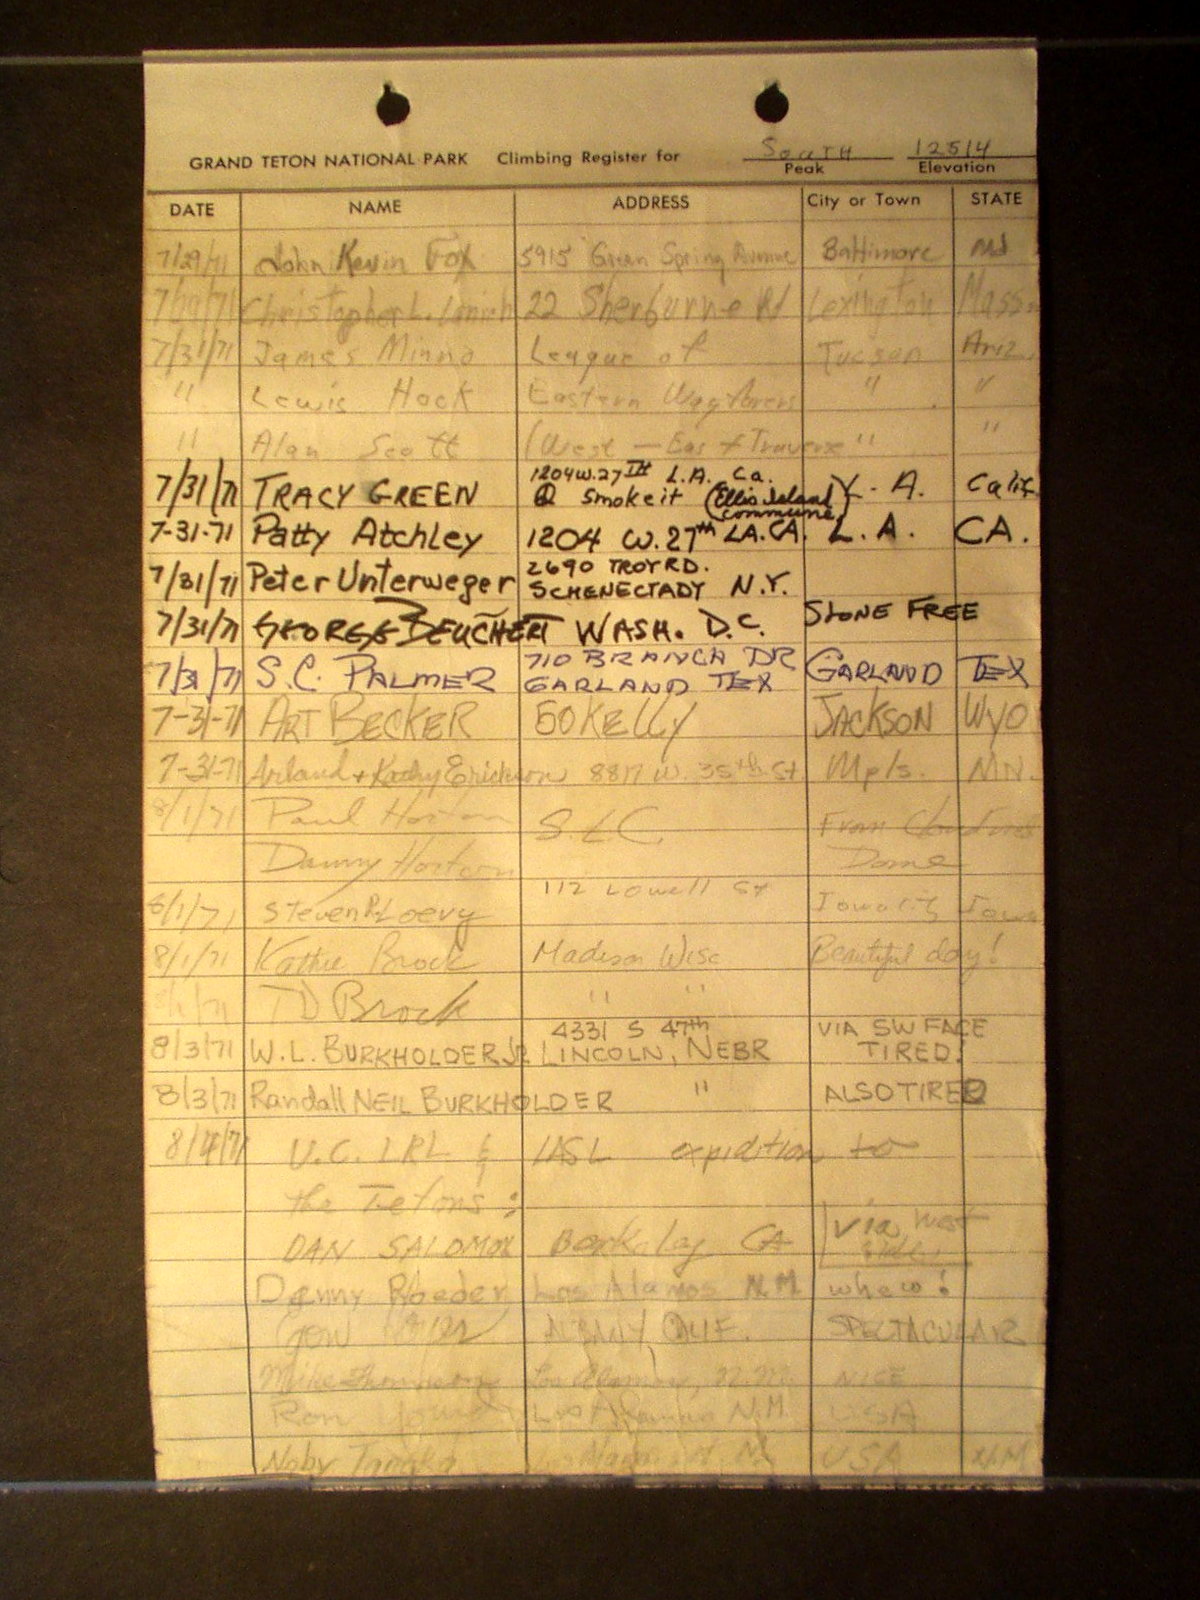 GRAND TETON NATIONAL PARK Climbing Register for SOUTH 12514
Peak Elevation
DATE NAME ADDRESS City or Town STATE
7/29/71 John Kevin Fox 5915 Green Spring Avenue Baltimore Md
Christopher L. 22 Sherburne Rd Lexington Mass
7/31/71 James Minno League of Tucson Ariz.
" Lewis Hock Eastern Wayfarers " "
" Alan Scott (West — East Traverse " "
1204 W. 27th L.A. Ca.
7/31/71 TRACY GREEN Smokeit (Ellis Island commune) A. Calif.
7-31-71 Patty Atchley 1204 W. 27th LA. CA. L.A. CA.
2690 TROY RD.
7/31/71 Peter Unterweger SCHENECTADY N.Y.
7/31/71 GEORGE BEUCHERT WASH. D.C. STONE FREE
710 BRANCH DR
7/31/71 S.C. PALMER GARLAND TEX GARLAND TEX
7-31-71 ART BECKER 50 KELLY JACKSON WYO
7-31-71 Arland + Kathy Erickson 8817 W. 35th St Mpls. MN.
8/1/71 Paul Horton S.L.C. From
Danny Horton Dome
112 Lowell St
8/1/71 Steven P. Loevy Iowa City Iowa
8/1/71 Kathie Brock Madison Wisc Beautiful day!
TD Brock " "
4331 S 47th VIA SW FACE
8/3/71 W.L. BURKHOLDER JR. LINCOLN, NEBR TIRED!
8/3/71 Randall NEIL BURKHOLDER " ALSO TIRED
8/4/71 U.C. LRL & LASL expidition to
the Tetons:
DAN SALOMON Berkeley CA via West
Denny Roeder Los Alamos N.M. whew!
ALBANY, CALIF. SPECTACULAR
Mike Los Alamos, N.M. NICE
Ron Young Los Alamos N.M. USA
Noby Tanaka Los Alamos N.M. USA N.M